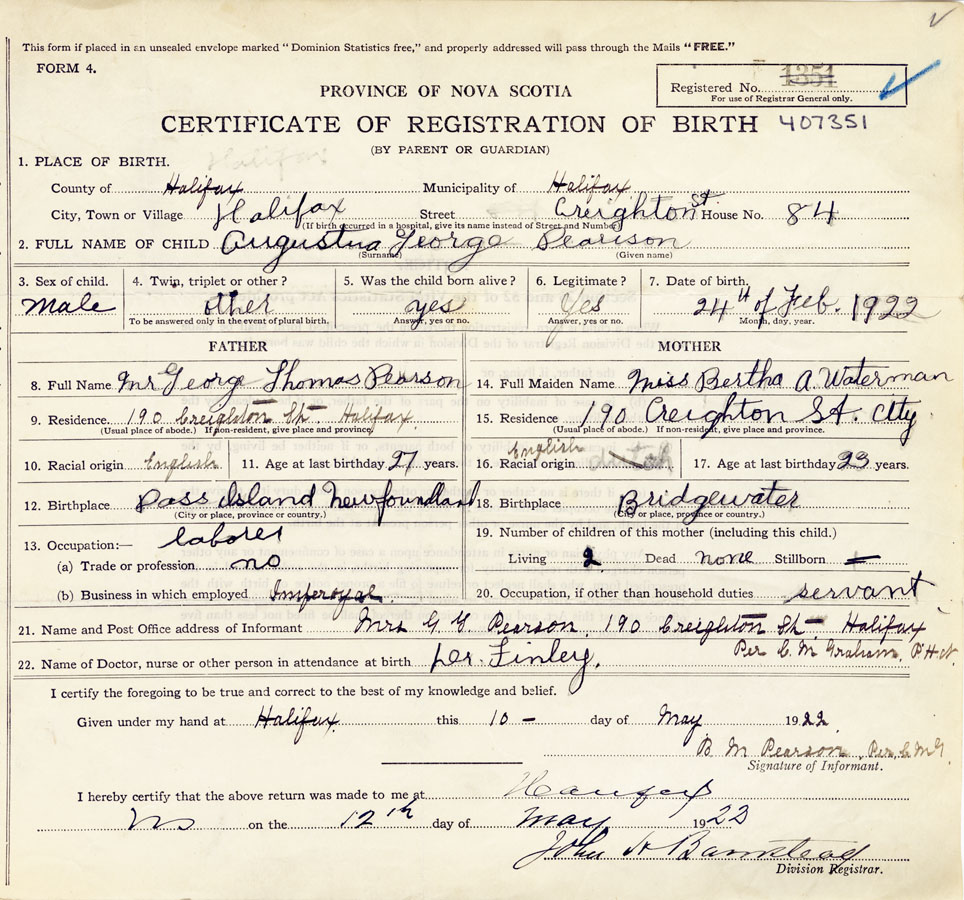 This form if placed in an unsealed envelope marked "Dominion Statistics free," and properly addressed will pass through the Mails "FREE."
FORM 4.
Registered No. 1351
For use of Registrar General only.
PROVINCE OF NOVA SCOTIA
CERTIFICATE OF REGISTRATION OF BIRTH 407351
(BY PARENT OR GUARDIAN)
1. PLACE OF BIRTH. Halifax
County of Halifax Municipality of Halifax
City, Town or Village Halifax Street Creighton St. House No. 84
(If birth occurred in a hospital, give its name instead of Street and Number)
2. FULL NAME OF CHILD Augustua George Pearson
(Surname) (Given name)
3. Sex of child. 4. Twin, triplet or other? 5. Was the child born alive? 6. Legitimate? 7. Date of birth.
Male other yes Yes 24th of Feb. 1922
To be answered only in the event of plural birth. Answer, yes or no. Answer, yes or no. Month, day, year.
FATHER
8. Full Name Mr George Thomas Pearson
9. Residence 190 Creighton St. Halifax
(Usual place of abode.) If non-resident, give place and province.
10. Racial origin English 11. Age at last birthday 27 years.
12. Birthplace Pass Island Newfoundland
(City or place, province or country.)
13. Occupation:— laborer
(a) Trade or profession no
(b) Business in which employed Imperoyal.
MOTHER
14. Full Maiden Name Miss Bertha A. Waterman
15. Residence 190 Creighton St. City
(Usual place of abode.) If non-resident, give place and province.
16. Racial origin English 17. Age at last birthday 23 years.
18. Birthplace Bridgewater
(City or place, province or country.)
19. Number of children of this mother (including this child.)
Living 2 Dead none Stillborn –
20. Occupation, if other than household duties servant
21. Name and Post Office address of Informant Mrs G. Pearson, 190 Creighton St. Halifax
Per C. M Graham, P.H.N.
22. Name of Doctor, nurse or other person in attendance at birth Dr. Finley.
I certify the foregoing to be true and correct to the best of my knowledge and belief.
Given under my hand at Halifax this 10 – day of May 1922
B. M Pearson, Per C. M G.
Signature of Informant.
I hereby certify that the above return was made to me at Halifax
NS on the 12th day of May 1922
John H Barnstead
Division Registrar.